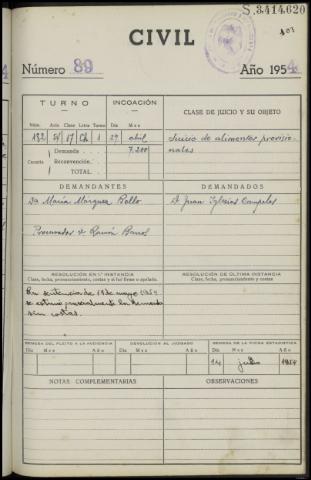 S.3.414.620
CIVIL
Número 89 Año 1954
TURNO INCOACIÓN CLASE DE JUICIO Y SU OBJETO
Núm. Año Clase Letra Turno Día Mes
132 17 1 29 abril Juicio de alimentos provisio-
nales
Cuantía Demanda 7.200
Reconvención
TOTAL
DEMANDANTES DEMANDADOS
Dª María Márquez D. Juan Iglesias
Procurador Sr. Ramón
RESOLUCIÓN EN 1.ª INSTANCIA RESOLUCIÓN DE ÚLTIMA INSTANCIA
Clase, fecha, pronunciamiento, costas y si fué firme o apelado. Clase, fecha, pronunciamiento y costas
En sentencia de mayo 1954
se estimó parcialmente la demanda
sin costas.
REMESA DEL PLEITO A LA AUDIENCIA DEVOLUCIÓN AL JUZGADO REMESA DE LA FICHA ESTADÍSTICA
Día Mes Año Día Mes Año Día Mes Año
14 1954
NOTAS COMPLEMENTARIAS OBSERVACIONES